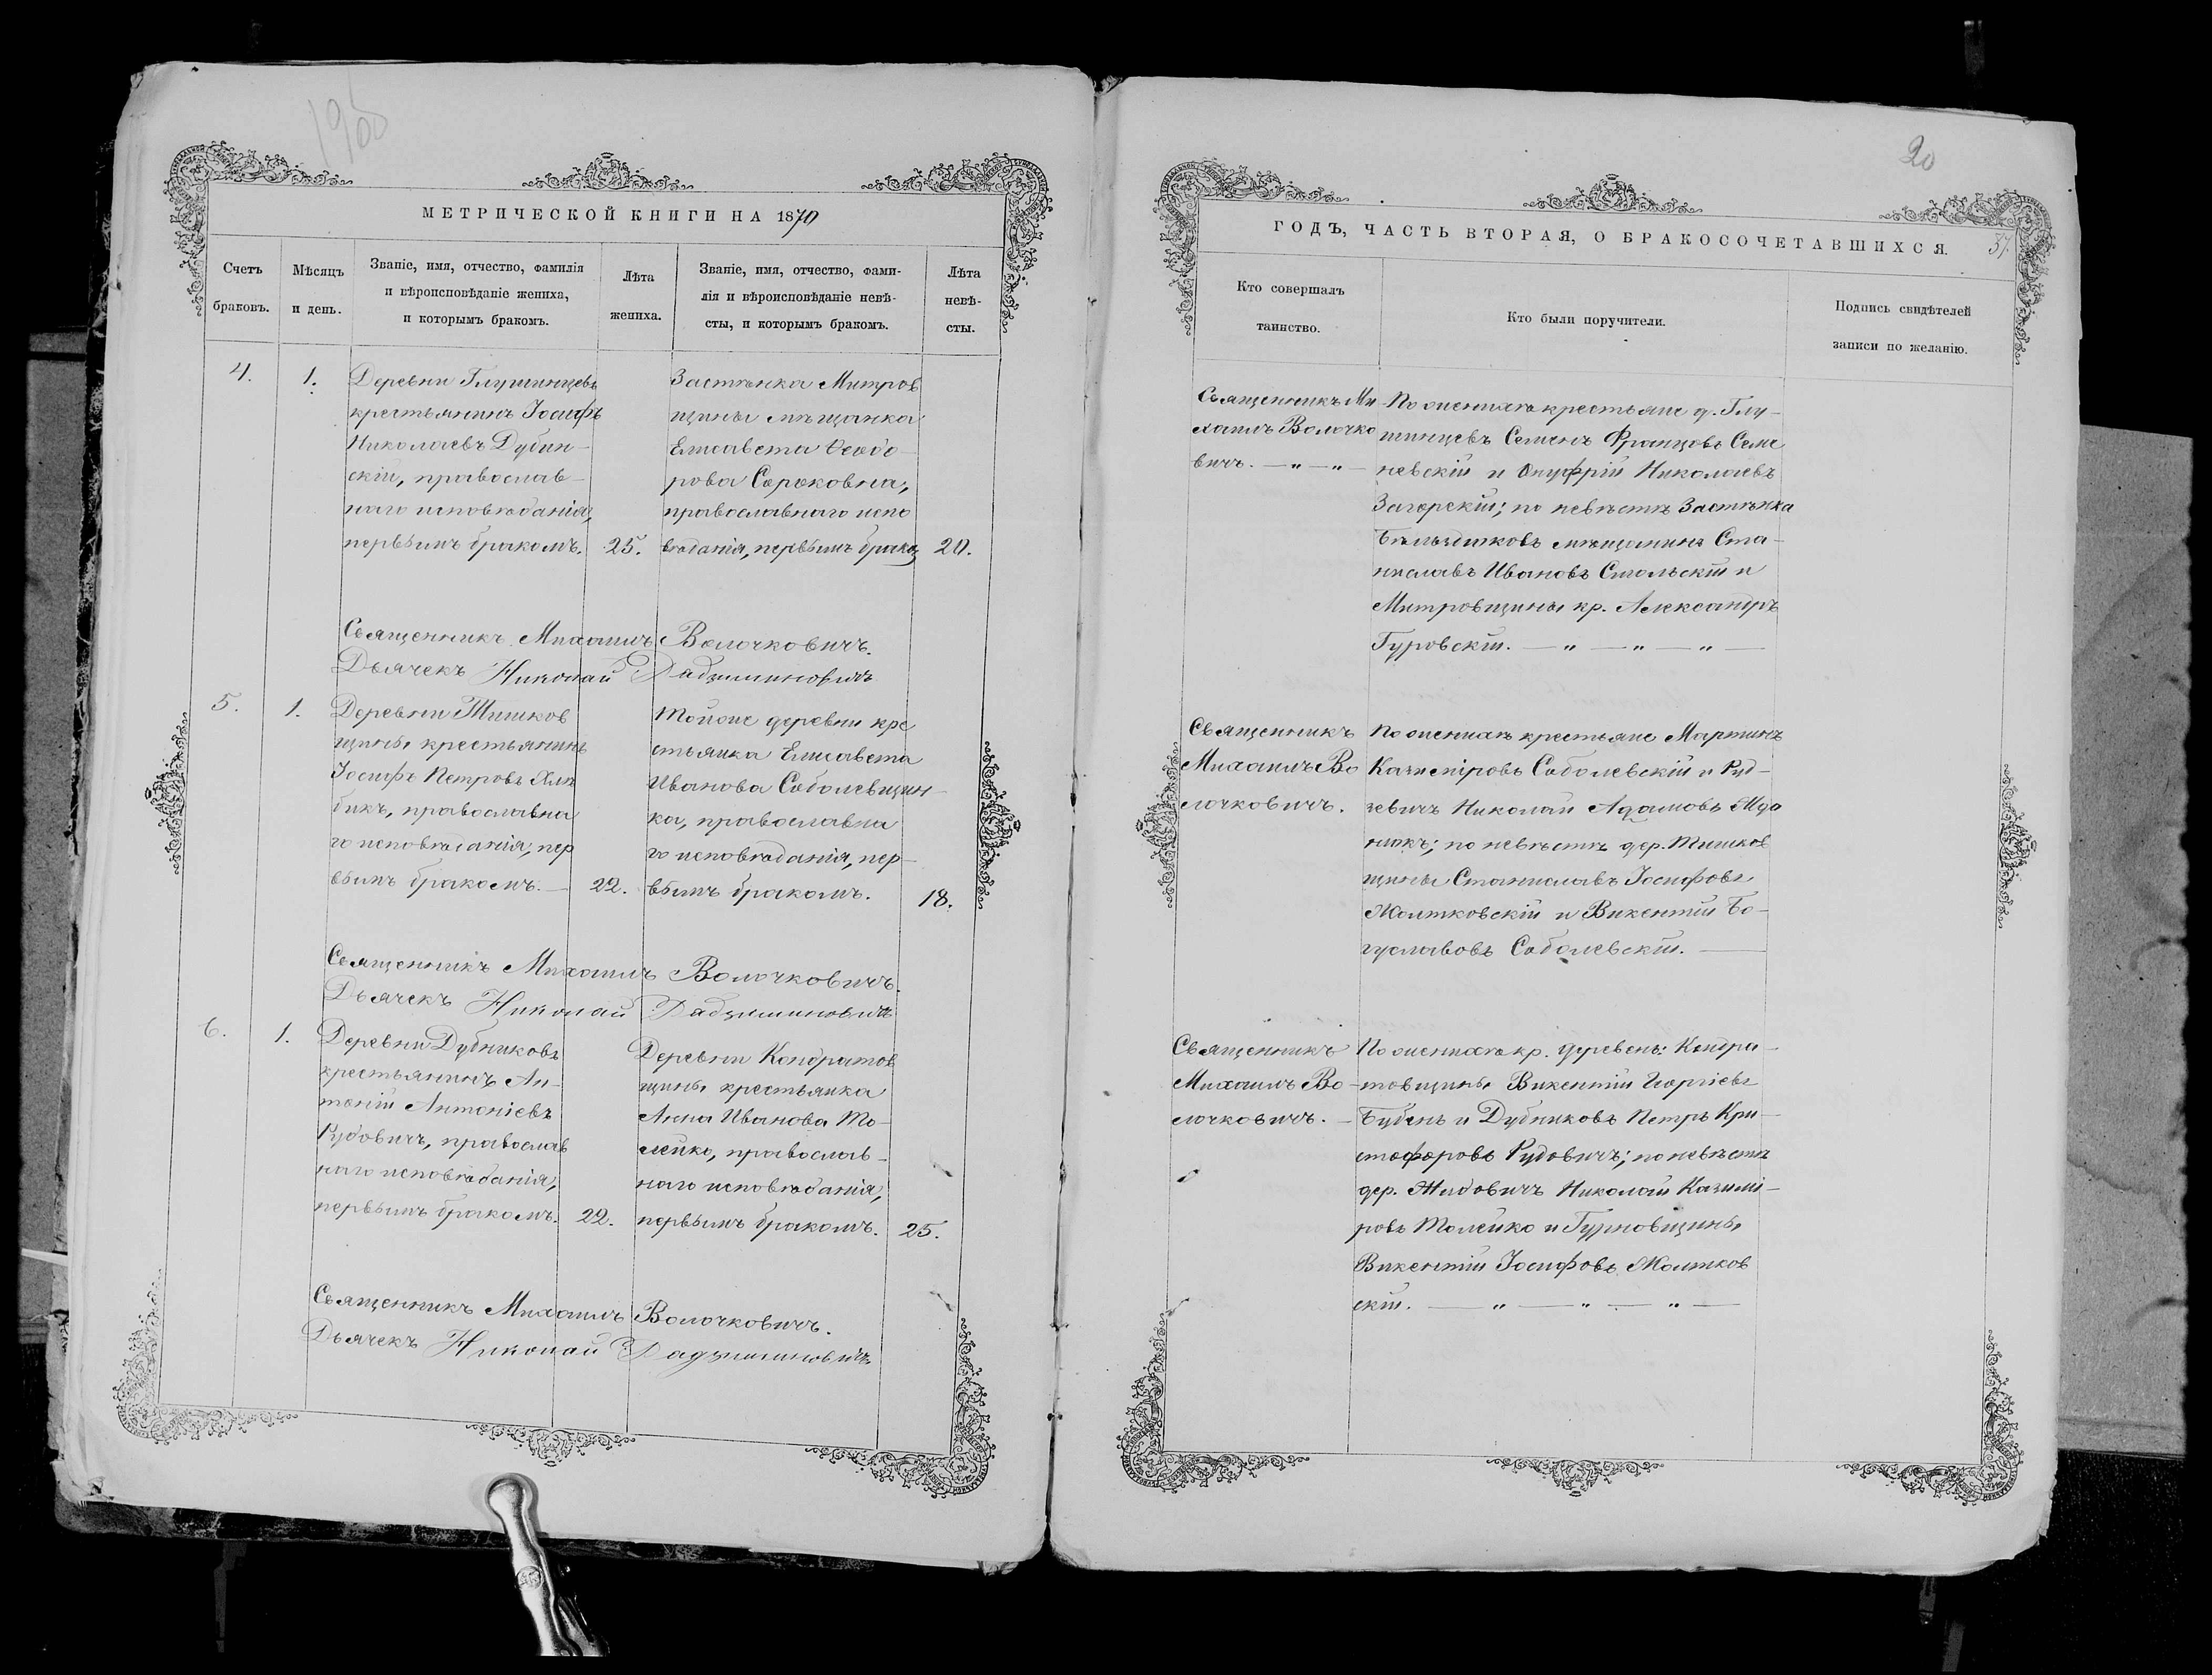 196
МЕТРИЧЕСКОЙ КНИГИ НА 1870
Счетъ
браковъ.
Мѣсяцъ
и день.
Званіе, имя, отчество, фамилія
и вѣроисповѣданіе жениха,
и которымъ бракомъ.
Лѣта
жениха.
Званіе, имя, отчество, фами-
лія и вѣроисповѣданіе невѣ-
сты, и которымъ бракомъ.
Лѣта
невѣ-
сты.
4.
1.
Деревни Глушинцевъ
крестьянинъ Іосифъ
Николаевъ Дубин-
скій, православ-
наго исповѣданія,
первымъ бракомъ.
25.
Застѣнка Митров
щины мѣщанка
Елисавета Ѳеодо-
рова Сороковна,
православнаго испо
вѣданія, первымъ брако
20.
Священникъ Михаилъ Волочковичъ.
Дьячекъ Николай
5.
1.
Деревни Тишков
щины крестьянинъ
Іосифъ Петровъ
бикъ, православна
го исповѣданія, пер
вымъ бракомъ. —
22.
Тойже деревни кре
стьянка Елисавета
Иванова Соболевщин-
ка, православна
го исповѣданія, пер-
вымъ бракомъ.
18.
Священникъ Михаилъ Волочковичъ.
Дьячекъ Николай
6.
1.
Деревни Дубниковъ
крестьянинъ Ан-
тоній Антоніевъ
Рудовичъ, православ
наго исповѣданія,
первымъ бракомъ.
22.
Деревни Кондратов
щины крестьянка
Анна Иванова То-
лейко, православ-
наго исповѣданія,
первымъ бракомъ.
25.
Священникъ Михаилъ Волочковичъ.
Дьячекъ Николай
20
37.
ГОДЪ, ЧАСТЬ ВТОРАЯ, О БРАКОСОЧЕТАВШИХСЯ.
Кто совершалъ
таинство.
Кто были поручители.
Подпись свидѣтелей
записи по желанію.
Священникъ Ми-
хаилъ Волочко
вичъ. — „ — „ —
По женихѣ крестьяне д. Глу-
шинцевъ Семенъ Францовъ Семе
невскій и Онуфрій Николаевъ
Загорскій; по невѣстѣ Застѣнка
мѣщанинъ Ста-
ниславъ Ивановъ Смольскій и
Митровщины кр. Александръ
Гуровскій. — „ — „ — „ —
Священникъ
Михаилъ Во
лочковичъ.
По женихѣ крестьяне Мартинъ
Казиміровъ Соболевскій и Руд-
зевичъ Николай Адамовъ Жда
нюкъ; по невѣстѣ дер. Тишков
щины Станиславъ Іосифовъ
Жолтковскій и Викентій Бо-
гуславовъ Соболевскій. —
Священникъ
Михаилъ Во-
лочковичъ. —
По женихѣ кр. деревень: Кондра-
товщины Викентій Георгіевъ
Бубенъ и Дубниковъ Петръ Кри-
стофоровъ Рудовичъ; по невѣстѣ
дер. Жидовичъ Николай Казимі-
ровъ Толейко и Гурновщины
Викентій Іосифовъ Жолтков
скій. — „ — „ — „ —